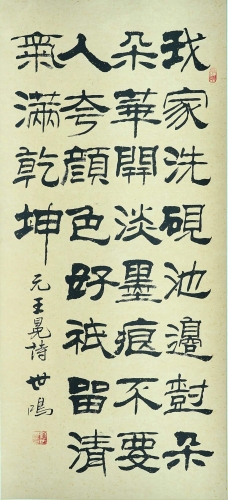 我家洗硯池邊尌朵
朵華開淡墨痕不要
人夸顏色好祇留清
氣滿乾坤
元王冕詩 世鳴